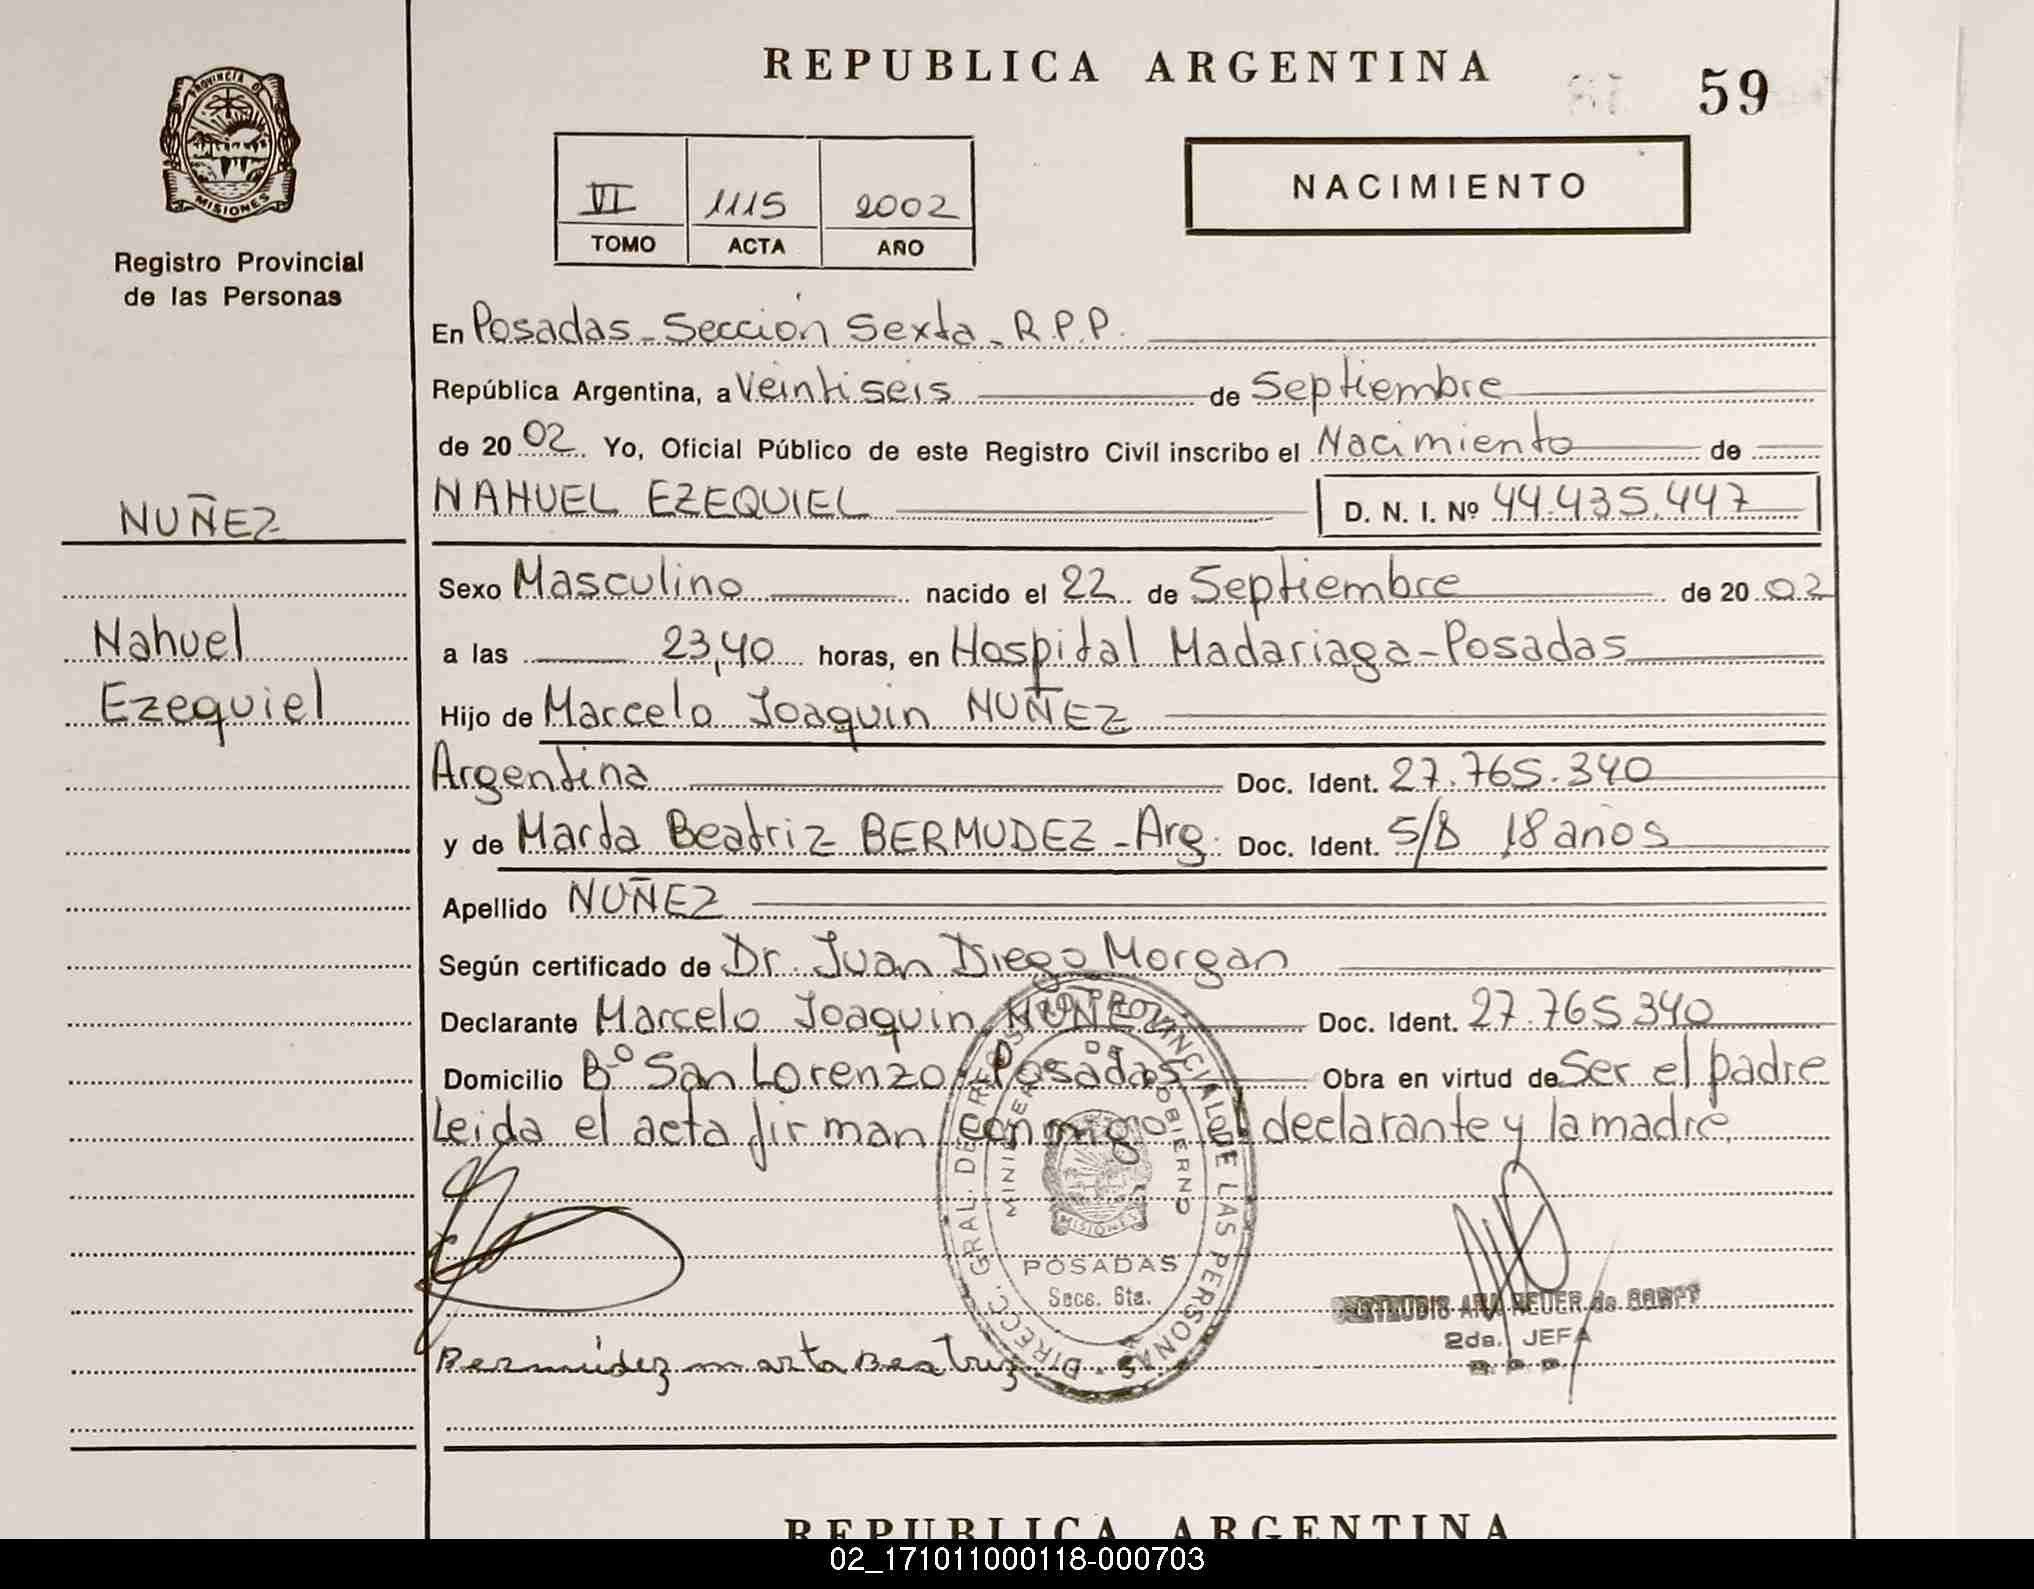 REPUBLICA ARGENTINA
59
PROVINCIA DE
MISIONES
Registro Provincial
de las Personas
VI 1115 2002
TOMO ACTA AÑO
NACIMIENTO
En Posadas - Sección Sexta - R.P.P.
República Argentina, a Veintiseis de Septiembre
de 20 02 Yo, Oficial Público de este Registro Civil inscribo el Nacimiento de
NUÑEZ
NAHUEL EZEQUIEL D. N. I. Nº 44.435.447
Sexo Masculino nacido el 22 de Septiembre de 20 02
Nahuel
a las 23,40 horas, en Hospital Madariaga - Posadas
Ezequiel
Hijo de Marcelo Joaquin NUÑEZ
Argentina Doc. Ident. 27.765.340
y de Marta Beatriz BERMUDEZ - Arg. Doc. Ident. S/B 18 años
Apellido NUÑEZ
Según certificado de Dr. Juan Diego Morgan
Declarante Marcelo Joaquin NUÑEZ Doc. Ident. 27.765.340
Domicilio Bº San Lorenzo - Posadas Obra en virtud de Ser el padre
Leida el acta firman conmigo el declarante y la madre
DIRECC. GRAL. DE REGISTRO PROVINCIAL DE LAS PERSONAS
MINISTERIO DE GOBIERNO
MISIONES
POSADAS
Secc. 6ta.
2da. JEFA
R. P. P.
Bermúdez marta Beatriz
REPUBLICA ARGENTINA
02_171011000118-000703